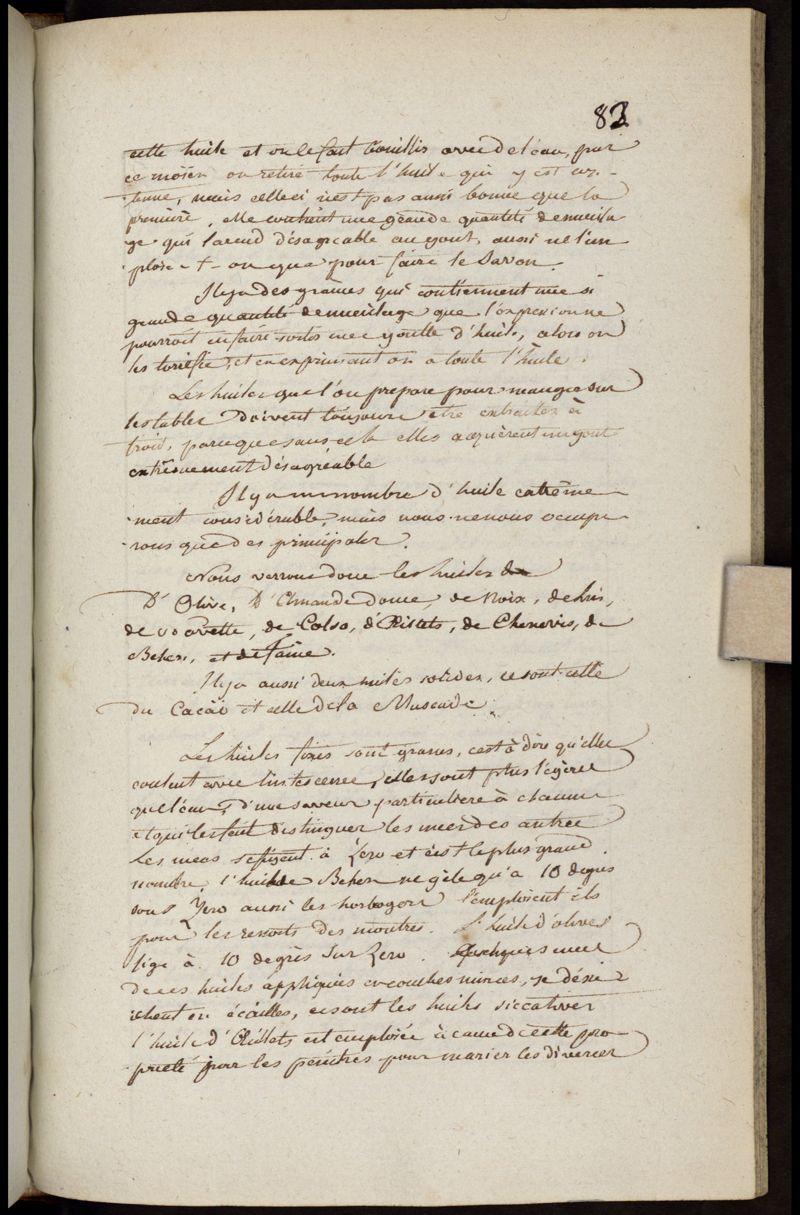 83
cette huile et on le fait bouillir avec de l'eau, par
ce moien on retire toute l'huile qui y est con-
-tenue, mais celle ci n'est pas aussi bonne que la
premiere, elle contient une grande quantité de mucila
ge qui la rend désagreable au gout, aussi ne l'em
ploie-t-on que pour faire le Savon.
Il y a des graines qui contiennent une si
grande quantité de mucilage que l'expression ne
pourroit en faire sortir une goutte d'huile, alors on
les torrefie, et en exprimant on a toute l'huile.
Les huiles que l'on prepare pour manger sur
les tables doivent toujours etre extraites à
froid, parceque sans cela elles acquièrent un gout
extrêmement désagréable
Il y a un nombre d'huile extrême-
-ment considérable, mais nous ne nous occupe-
-rons que des principales.
Nous verrons donc les huiles
D'Olive, D'Amande douce, de Noix, de Lin,
de Navette, de Colsa, d'Œillets, de Chenevis, de
Behen, et de faine.
Il y a aussi deux huiles solides, ce sont celle
du Cacao et celle de la Muscade.
Les huiles fixes sont grasses, c'est à dire qu'elles
coulent avec lentesence, elles sont plus légères
que l'eau, d'une saveur particuliere à chacune
et qui les fait distinguer les unes des autres
Les unes se figent à Zero et c'est le plus grand
nombre, l'huile de Behen ne gèle qu'a 10 degres
sous Zero aussi les horlogers l'emploient ils
pour les ressorts des montres. L'huile d'olives
fige à 10 degrès sur Zero. Quelques unes
de ces huiles appliquées en couches minces, se déssé
chent en écailles, ce sont les huiles siccatives
l'huile d'Œillets est emploiée à cause de cette pro
prieté pour les peintres pour marier les diverses